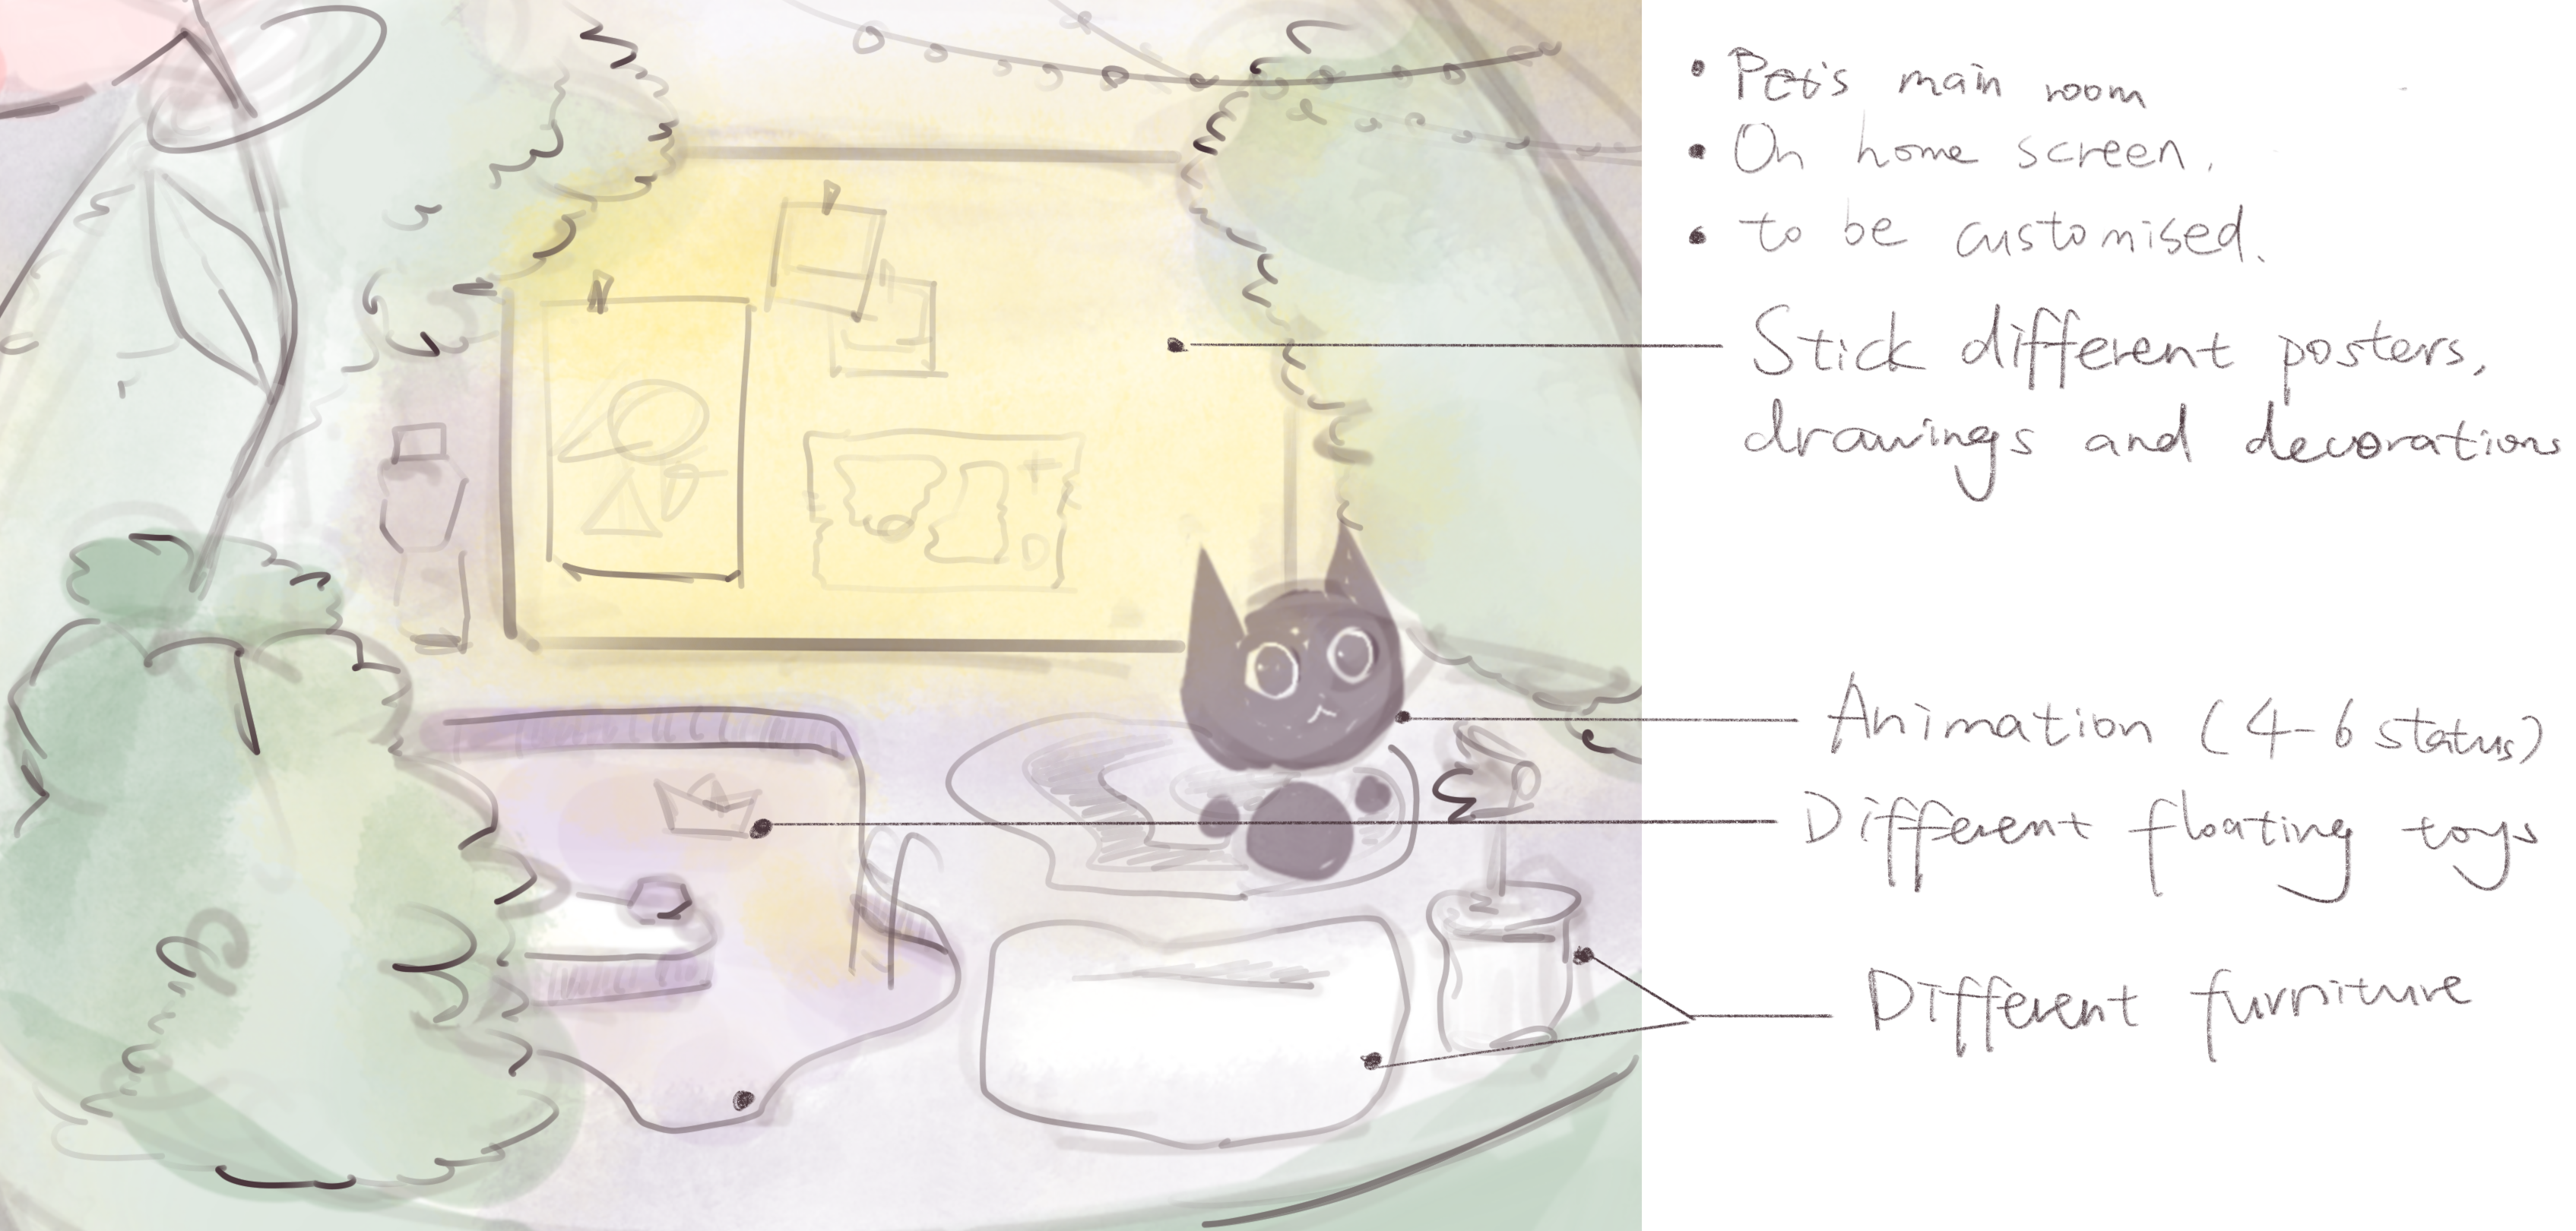 • Pet's main room
• On home screen.
• to be customised.
Stick different posters,
drawings and decorations
Animation (4-6 status)
Different floating toys
Different furniture